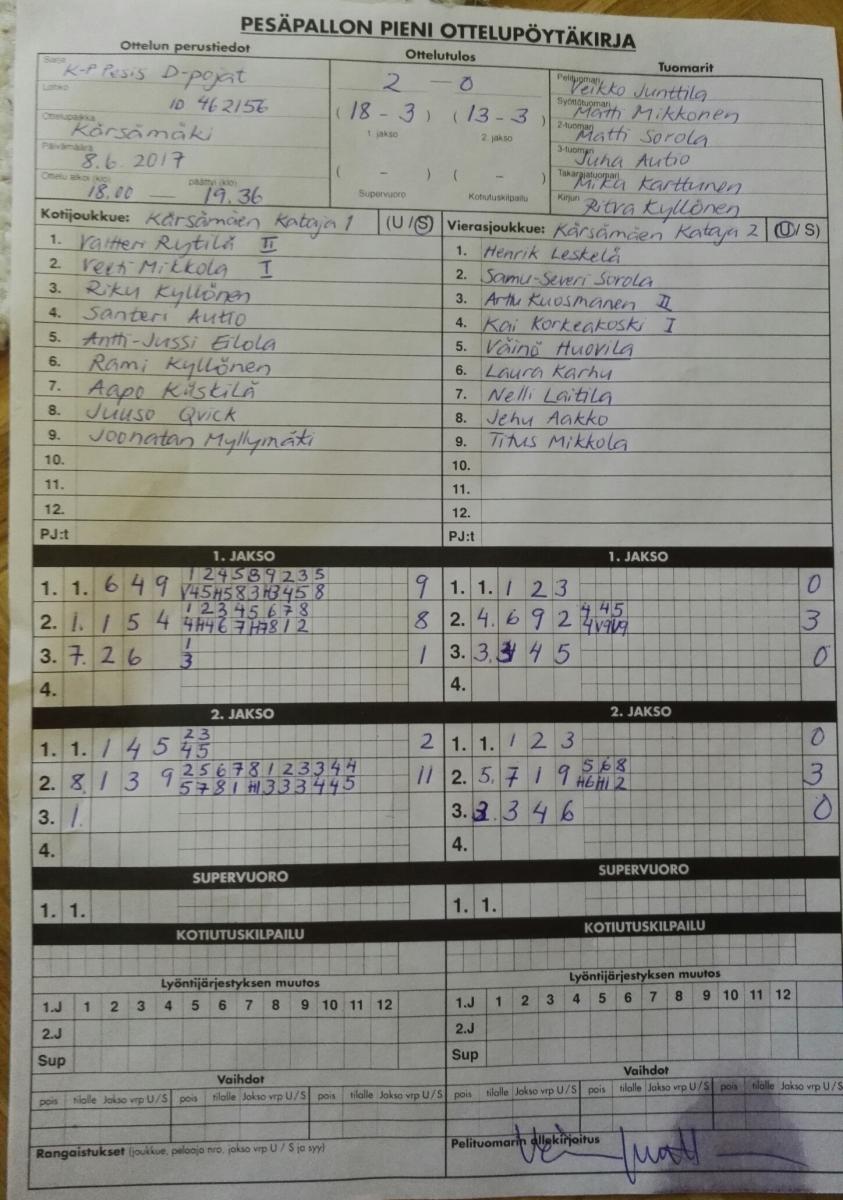 PESÄPALLON PIENI OTTELUPÖYTÄKIRJA
Ottelun perustiedot
Ottelutulos
Tuomarit
Sarja
K-P Pesis D-pojat
Lohko
ID 462156
Ottelupaikka
Kärsämäki
Päivämäärä
8.6. 2017
Ottelu alkoi (klo) päättyi (klo)
18.00 — 19.36
2 — 0
( 18 - 3 ) ( 13 - 3 )
1. jakso 2. jakso
( - ) ( - )
Supervuoro Kotiutuskilpailu
Pelituomari
Veikko Junttila
Syöttötuomari
Matti Mikkonen
2-tuomari
Matti Sorola
3-tuomari
Juha Autio
Takarajatuomari
Mika Karttunen
Kirjuri
Ritva Kyllönen
Kotijoukkue: Kärsämäen Kataja 1 (U / S)
1. Valtteri Rytilä II
2. Veeti Mikkola I
3. Riku Kyllönen
4. Santeri Autio
5. Antti-Jussi Eilola
6. Rami Kyllönen
7. Aapo Kiiskilä
8. Juuso Qvick
9. Joonatan Myllymäki
10.
11.
12.
PJ:t
Vierasjoukkue: Kärsämäen Kataja 2 (U / S)
1. Henrik Leskelä
2. Samu-Severi Sorola
3. Arttu Kuosmanen II
4. Kai Korkeakoski I
5. Väinö Huovila
6. Laura Karhu
7. Nelli Laitila
8. Jehu Aakko
9. Titus Mikkola
10.
11.
12.
PJ:t
1. JAKSO
1. 1. 6 4 9 9
2. 1. 1 5 4 1 2 3 4 5 6 7 8 8
3. 7. 2 6 1 1
3
4.
1. JAKSO
1. 1. 1 2 3 0
2. 4. 6 9 2 4 4 5 3
3. 3. 4 5 0
4.
2. JAKSO
1. 1. 1 4 5 2 3 2
4 5
2. 8. 1 3 9 2 5 6 7 8 1 2 3 3 4 4 11
5 7 8 1 H1 3 3 3 4 4 5
3. 1.
4.
2. JAKSO
1. 1. 1 2 3 0
2. 5. 7 1 9 5 6 8 3
H6 H1 2
3. 3 4 6 0
4.
SUPERVUORO
1. 1.
SUPERVUORO
1. 1.
KOTIUTUSKILPAILU
KOTIUTUSKILPAILU
Lyöntijärjestyksen muutos
1.J 1 2 3 4 5 6 7 8 9 10 11 12
2.J
Sup
Lyöntijärjestyksen muutos
1.J 1 2 3 4 5 6 7 8 9 10 11 12
2.J
Sup
Vaihdot
pois tilalle Jakso vrp U / S pois tilalle Jakso vrp U / S pois tilalle Jakso vrp U / S
Vaihdot
pois tilalle Jakso vrp U / S pois tilalle Jakso vrp U / S pois tilalle Jakso vrp U / S
Rangaistukset (joukkue, pelaaja nro, jakso vrp U / S ja syy)
Pelituomarin allekirjoitus